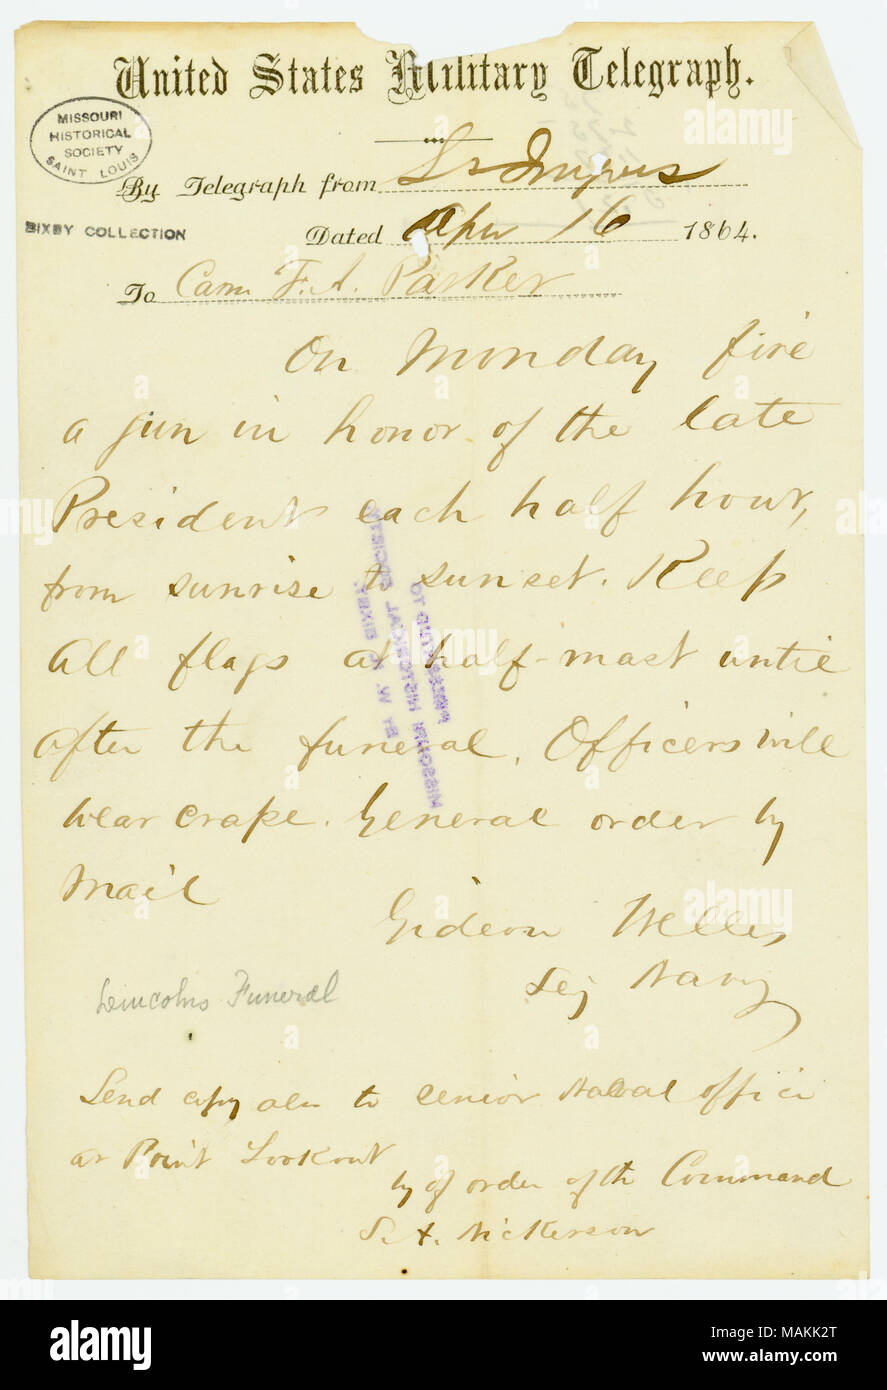 United States Military Telegraph.
MISSOURI
HISTORICAL
SOCIETY
SAINT LOUIS
By Telegraph from
BIXBY COLLECTION
Dated Apr 16 1864.
To Com. F. A. Parker
On Monday fire
a gun in honor of the late
President each half hour,
from sunrise to sunset. Keep
All flags at half-mast until
after the funeral. Officers will
wear crape. General order by
Mail
Gideon Welles
Secy Navy
Lincolns Funeral
Send copy also to senior Naval officer
at Point Lookout
by of order of the Command
S. A. Nickerson
PRESENTED TO
MISSOURI HISTORICAL SOCIETY
BY W. K. BIXBY
alamy
Image ID: MAKK2T
www.alamy.com